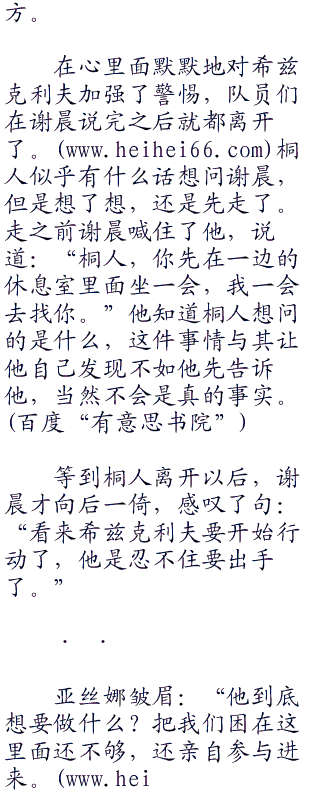 方。
在心里面默默地对希兹
克利夫加强了警惕，队员们
在谢晨说完之后就都离开
了。(www.heihei66.com)桐
人似乎有什么话想问谢晨，
但是想了想，还是先走了。
走之前谢晨喊住了他，说
道：“桐人，你先在一边的
休息室里面坐一会，我一会
去找你。”他知道桐人想问
的是什么，这件事情与其让
他自己发现不如他先告诉
他，当然不会是真的事实。
(百度“有意思书院”)
等到桐人离开以后，谢
晨才向后一倚，感叹了句：
“看来希兹克利夫要开始行
动了，他是忍不住要出手
了。”
． ．
亚丝娜皱眉：“他到底
想要做什么？把我们困在这
里面还不够，还亲自参与进
来。(www.hei